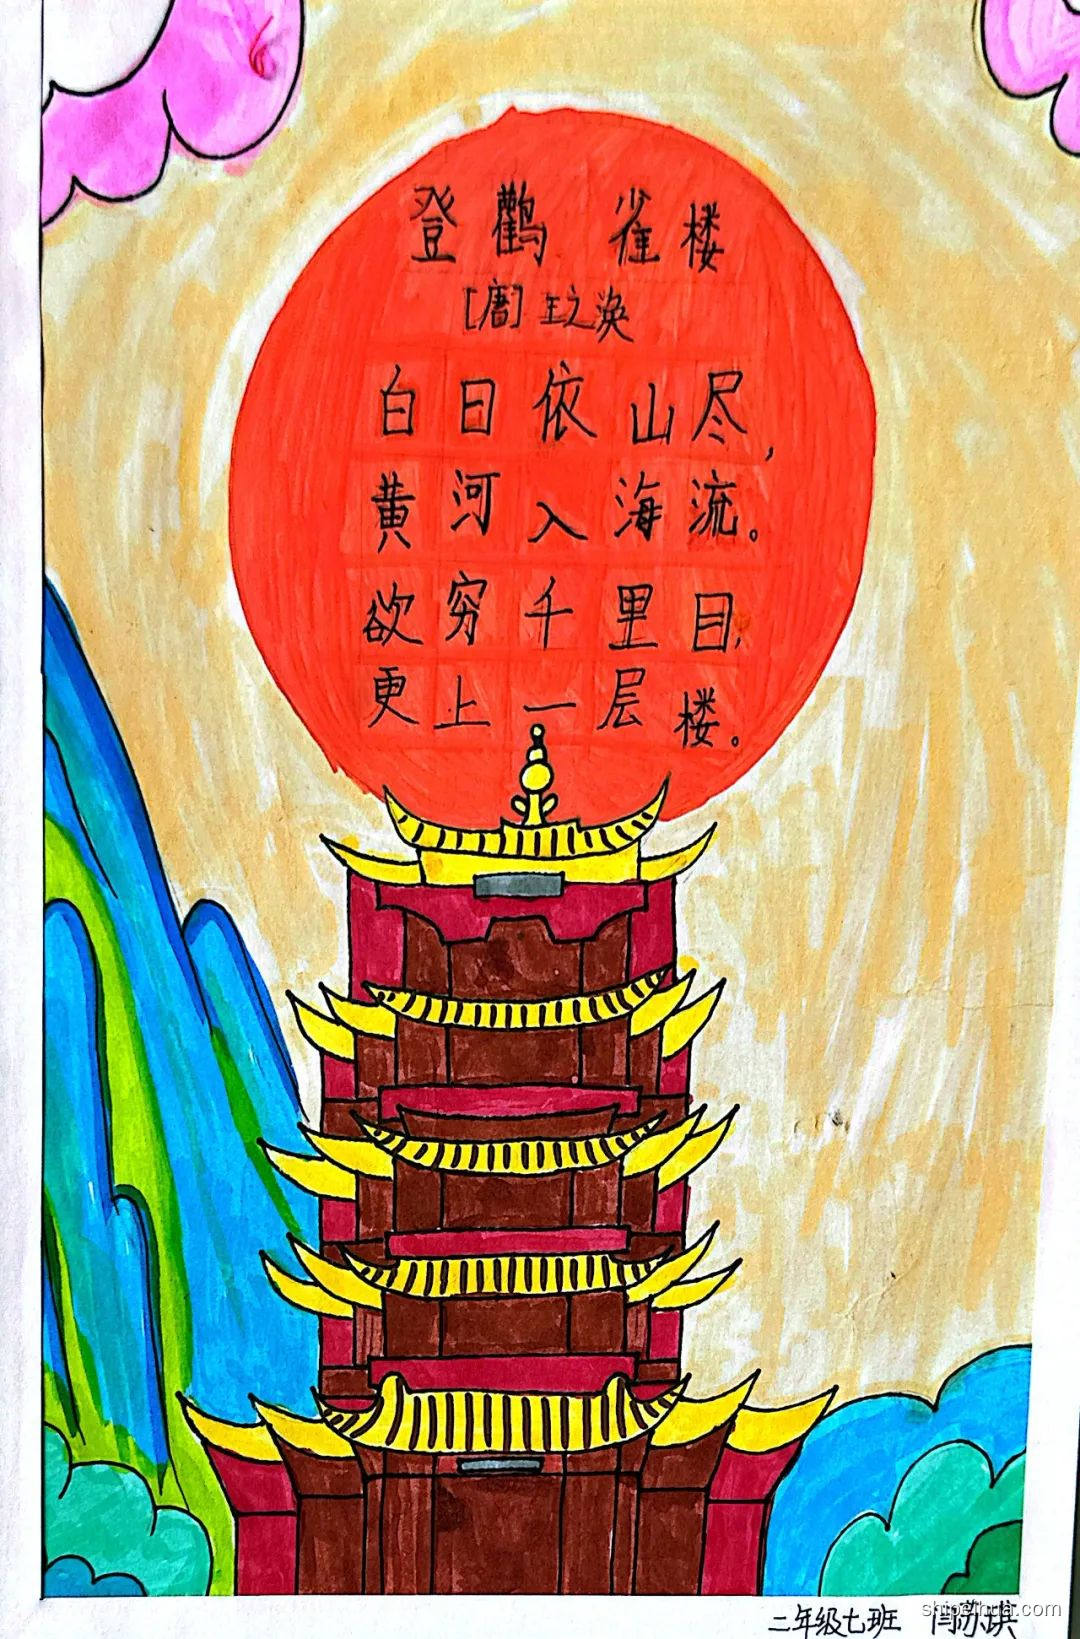 登鹳雀楼
[唐] 王之涣
白日依山尽，
黄河入海流。
欲穷千里目，
更上一层楼。
二年级七班 闫苏淇
shipeihua.com